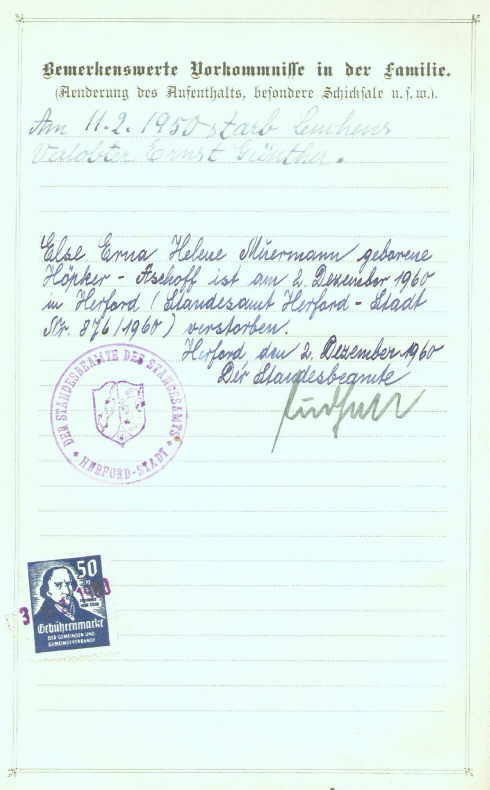 Bemerkenswerte Vorkommnisse in der Familie.
(Aenderung des Aufenthalts, besondere Schicksale u. s. w.).
Am 11.2.1950 starb
Verlobter Ernst Günther.
Else Erna Helene Müermann geborene
Höpker-Aschoff ist am 2. Dezember 1960
in Herford (Standesamt Herford-Stadt
Nr. 876/1960) verstorben.
Herford den 2. Dezember 1960
Der Standesbeamte
DER STANDESBEAMTE DES STANDESAMTS
* HERFORD-STADT *
50
3
Gebührenmarke
DER GEMEINDEN UND
GEMEINDEVERBÄNDE